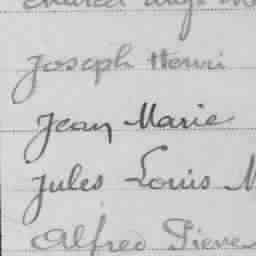 Joseph Henri
Jean Marie
Jules Louis M
Alfred Pierre